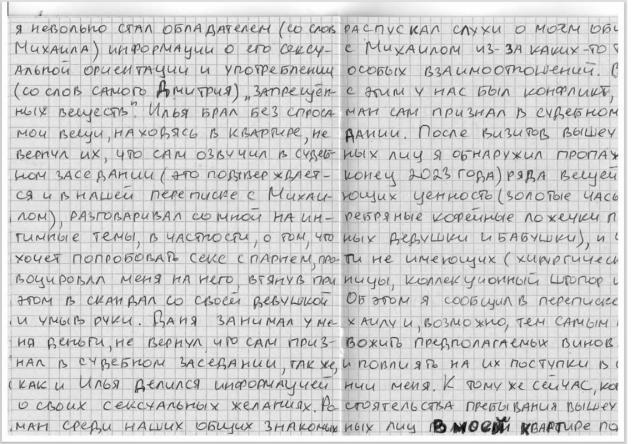 я невольно стал обладателем (со слов
Михаила) информации о его сексу-
альной ориентации и употреблении
(со слов самого Дмитрия) „запрещён-
ных веществ". Илья брал без спроса
мои вещи, находясь в квартире, не
вернул их, что сам озвучил в судеб-
ном заседании (это подтверждает-
ся и в нашей переписке с Михаи-
лом), разговаривал со мной на ин-
тимные темы, в частности, о том, что
хочет попробовать секс с парнем, про-
воцировал меня на него, втянув при
этом в скандал со своей девушкой
и умыв руки. Даня занимал у ме-
ня деньги, не вернул, что сам приз-
нал в судебном заседании, так же,
как и Илья делился информацией
о своих сексуальных желаниях. Ро-
ман среди наших общих знакомых
распускал слухи о моём общ
с Михаилом из-за каких-то т
особых взаимоотношений. В
с этим у нас был конфликт,
ман сам признал в судебном
дании. После визитов вышеу
ных лиц я обнаружил пропаж
конец 2023 года) ряда вещей
ющих ценность (золотые часы
ребряные кофейные ложечки п
ных дедушки и бабушки), и
ти не имеющих (хирургическ
ницы, коллекционный штопор и
Об этом я сообщил в переписке
хаилу и, возможно, тем самым
вожить предполагаемых винов
и повлиять на их поступки в о
нии меня. К тому же сейчас, ко
стоятельства пребывания вышеу
ных лиц в моей квартире по